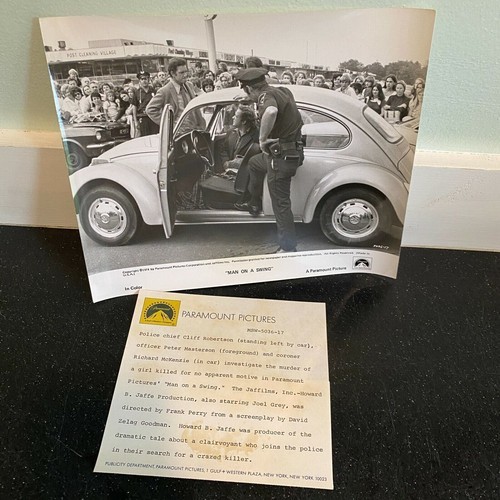 POST CLEANING VILLAGE
"MAN ON A SWING"
A Paramount Picture
In Color
PARAMOUNT PICTURES
MOW-5036-17
Police chief Cliff Robertson (standing left by car),
officer Peter Masterson (foreground) and coroner
Richard McKenzie (in car) investigate the murder of
a girl killed for no apparent motive in Paramount
Pictures' "Man on a Swing." The Jaffilms, Inc.-Howard
B. Jaffe Production, also starring Joel Grey, was
directed by Frank Perry from a screenplay by David
Zelag Goodman. Howard B. Jaffe was producer of the
dramatic tale about a clairvoyant who joins the police
in their search for a crazed killer.
PUBLICITY DEPARTMENT, PARAMOUNT PICTURES, 1 GULF + WESTERN PLAZA, NEW YORK, NEW YORK 10023